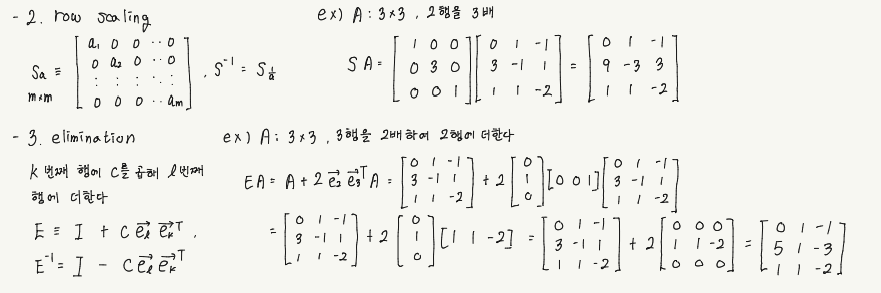 - 2. row scaling
S_a ≡ [a₁ 0 0 ·· 0; 0 a₂ 0 ·· 0; : : : · :; 0 0 0 ·· a_m] , S⁻¹ = S_{1/a}
m×m
ex) A : 3×3 , 2행을 3배
SA = [1 0 0; 0 3 0; 0 0 1] [0 1 -1; 3 -1 1; 1 1 -2] = [0 1 -1; 9 -3 3; 1 1 -2]
- 3. elimination
k 번째 행에 c를 곱해 l번째
행에 더한다
E ≡ I + c e⃗_l e⃗_k^T ,
E⁻¹ = I - c e⃗_l e⃗_k^T
ex) A : 3×3 , 3행을 2배하여 2행에 더한다
EA = A + 2 e⃗₂ e⃗₃^T A = [0 1 -1; 3 -1 1; 1 1 -2] + 2 [0; 1; 0] [0 0 1] [0 1 -1; 3 -1 1; 1 1 -2]
= [0 1 -1; 3 -1 1; 1 1 -2] + 2 [0; 1; 0] [1 1 -2] = [0 1 -1; 3 -1 1; 1 1 -2] + 2 [0 0 0; 1 1 -2; 0 0 0] = [0 1 -1; 5 1 -3; 1 1 -2]